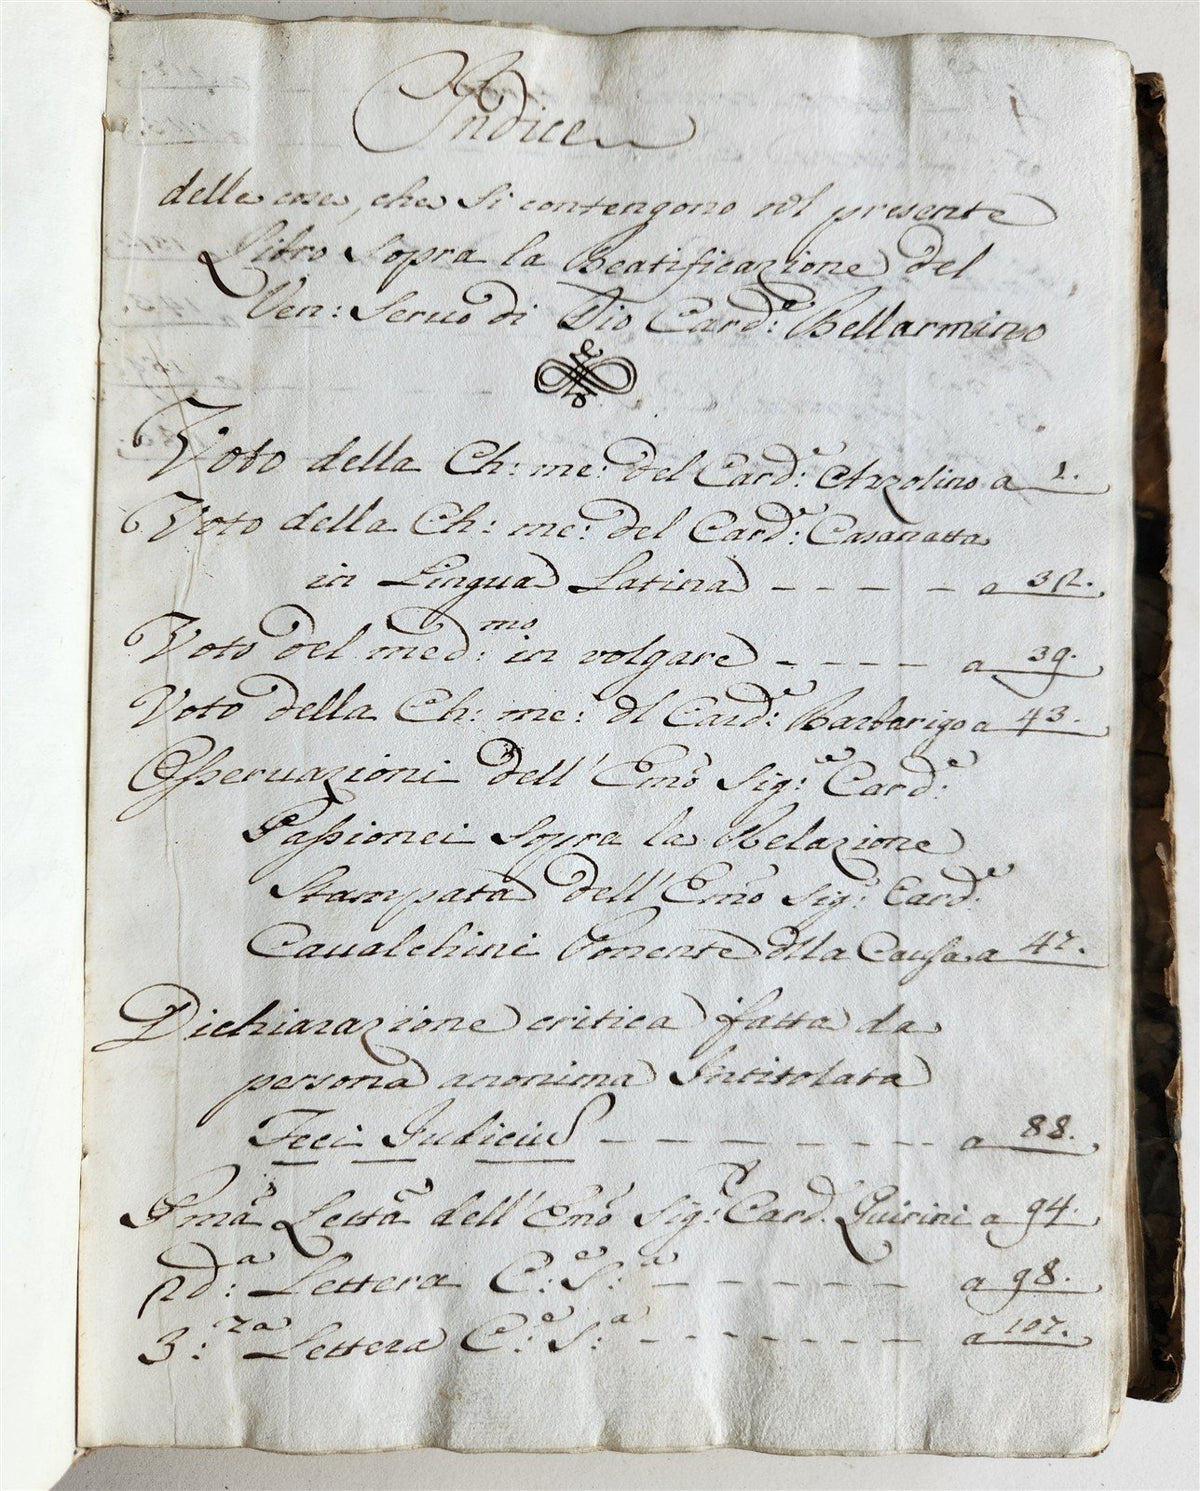 Indice
delle cose, che si contengono nel presente
Libro sopra la Beatificazione del
Ven: Seruo di Dio Card:e Bellarmino
Voto della Ch: me: del Card:e Azzolino a 1.
Voto della Ch: me: del Card:e Casanatta
in Lingua Latina - - - - - a 32.
Voto del med:mo in volgare - - - - a 39.
Voto della Ch: me: dl Card:e Barbarigo a 43.
Osseruazioni dell' Emo Sig:e Card:e
Passionei sopra la Relazione
Stampata dell' Emo Sig:e Card:e
Caualchini Ponente dlla Causa a 47.
Dichiarazione critica fatta da
persona anonima Intitolata
Feci Judiciu - - - - - - - - - a 88.
Pma Letta dell' Emo Sig:e Card. Quirini a 94.
2d:a Lettera C:e S:a - - - - - - - a 98.
3:za Lettera C:e S:a - - - - - - - a 107.